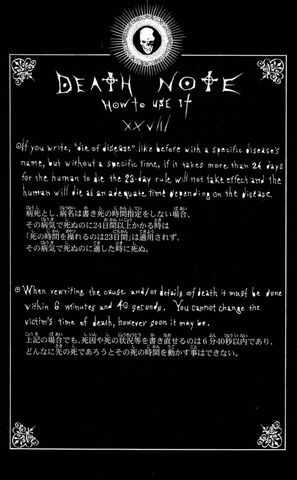 DEATH NOTE
HOW TO USE IT
XXVIII
If you write, "die of disease" like before with a specific disease's
name, but without a specific time, if it takes more than 24 days
for the human to die the 23-day rule will not take effect and the
human will die at an adequate time depending on the disease.
病死とし、病名は書き死の時間指定をしない場合、
その病気で死ぬのに24日間以上かかる時は
「死の時間を操れるのは23日間」は適用されず、
その病気で死ぬのに適した時に死ぬ。
When rewriting the cause and/or details of death it must be done
within 6 minutes and 40 seconds. You cannot change the
victim's time of death, however soon it may be.
上記の場合でも、死因や死の状況等を書き直せるのは6分40秒以内であり、
どんなに先の死であろうとその死の時間を動かす事はできない。